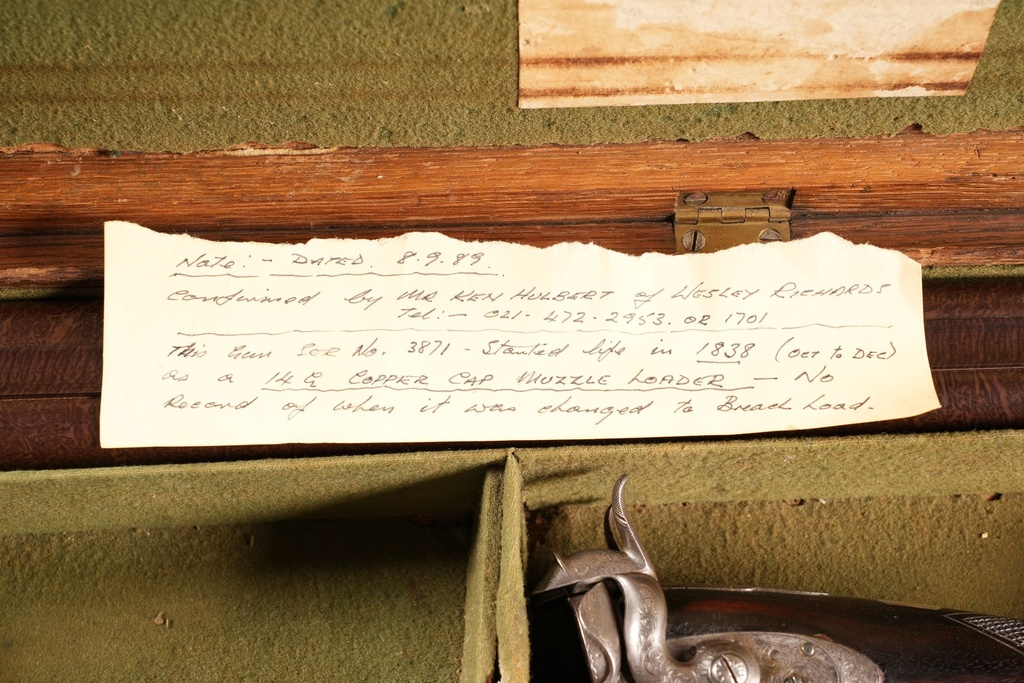 Note:- DATED. 8.9.89.
confirmed by MR KEN HULBERT of WESLEY RICHARDS
Tel:- 021. 472. 2953. OR 1701
This Gun SER No. 3871 - Started life in 1838 (OCT to DEC)
as a 14 G COPPER CAP MUZZLE LOADER - No
Record of when it was changed to Breach Load.